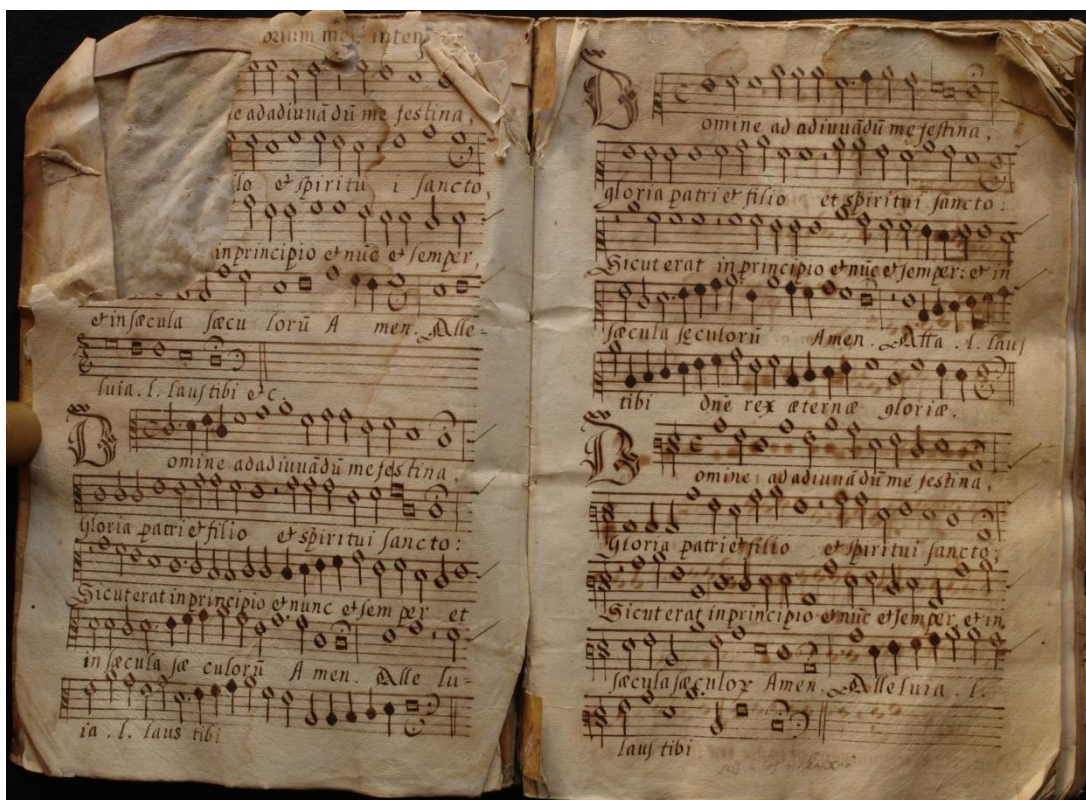 orium meũ inten
ne adadiuuãdũ me festina,
lo et spiritu i sancto,
in principio et nũc et semper,
et in sæcula sæcu lorũ A men. Alle-
luia. l. laus tibi etc.
Domine adadiuuãdũ me festina,
Gloria patri et filio et spiritui sancto:
Sicut erat in principio et nunc et sem per et
in sæcula sæ culorũ A men. Alle lu-
ia. l. laus tibi
Domine ad adiuuãdũ me festina,
gloria patri et filio et spiritui sancto:
Sicut erat in principio et nũc et semper: et in
sæcula sęculorũ Amen. l. laus
tibi dñe rex æternæ gloriæ.
Domine ad adiuuãdũ me festina,
Gloria patri et filio et spiritui sancto;
Sicut erat in principio et nũc et semper, et in
sæcula sæculoꝝ Amen. Alleluia. l.
laus tibi